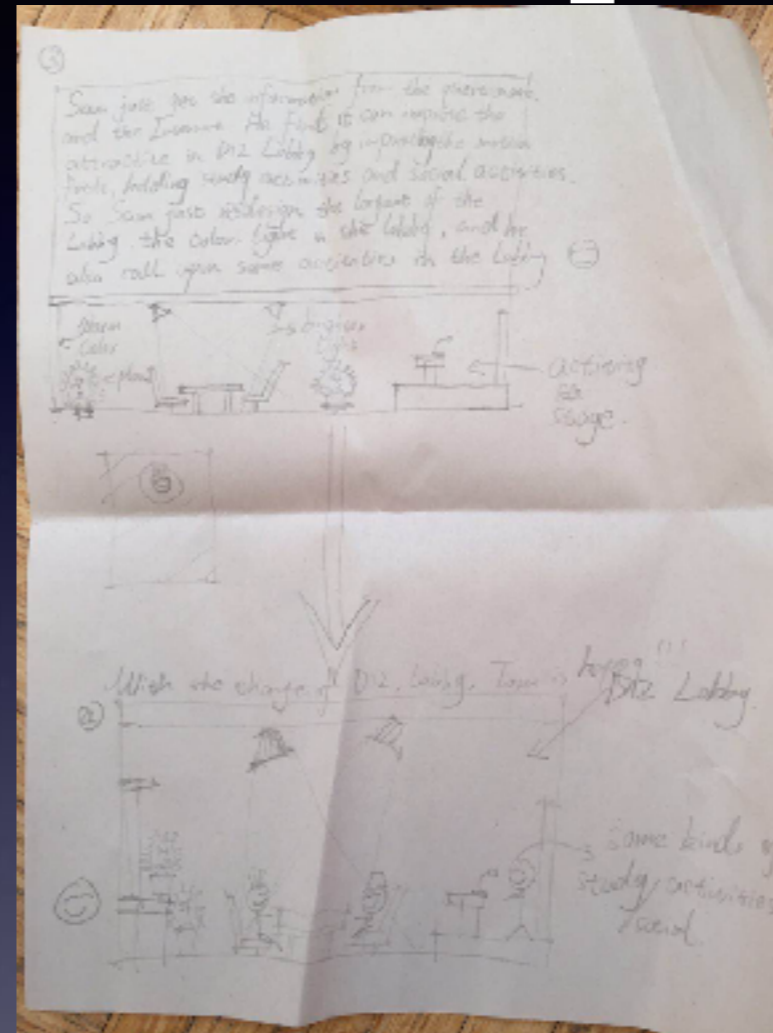 ③
Sam just the information from the
and the He find it can improve the
attractive in D12 Lobby by improving the
holding study activities and social activities.
So Sam just redesign the layout of the
Lobby, the color, light in the lobby, and he
also call upon some activities in the Lobby
Warm
color
plant
light
activity
stage.
With the change of D12, Lobby, is happy!!!
D12 Lobby.
some kinds of
study/activities
/social.